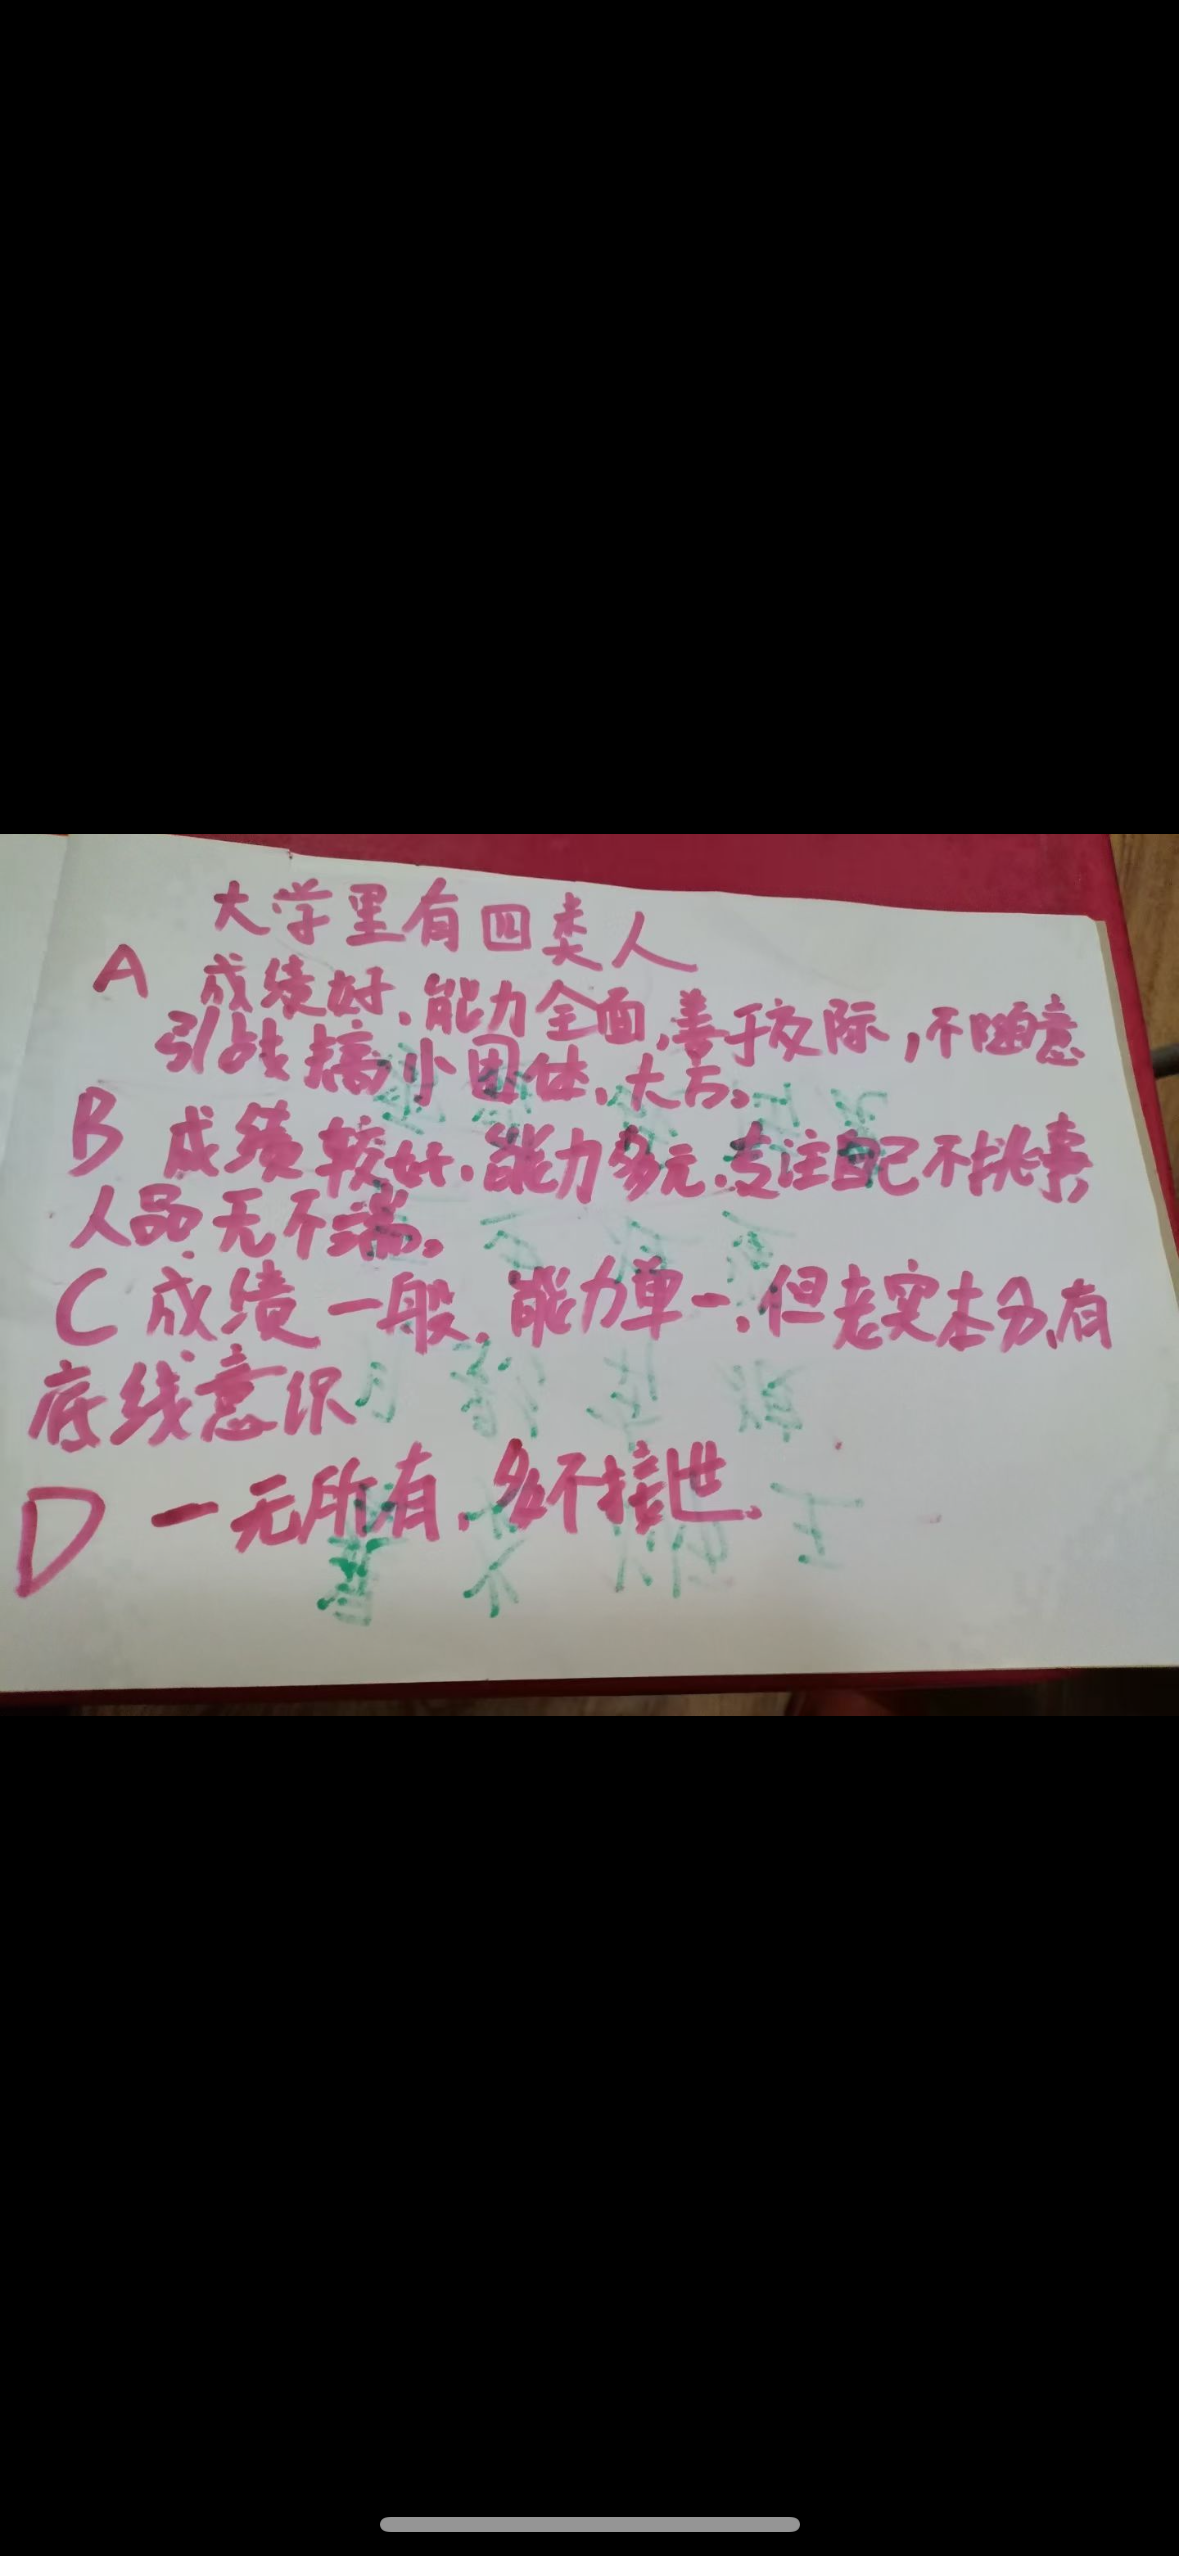 大学里有四类人
A 成绩好、能力全面、善于交际，不随意
引战搞小团体、大方。
B 成绩较好、能力多元、专注自己不挑事
人品无不端。
C 成绩一般、能力单一、但老实本分、有
底线意识
D 一无所有、多不接世、